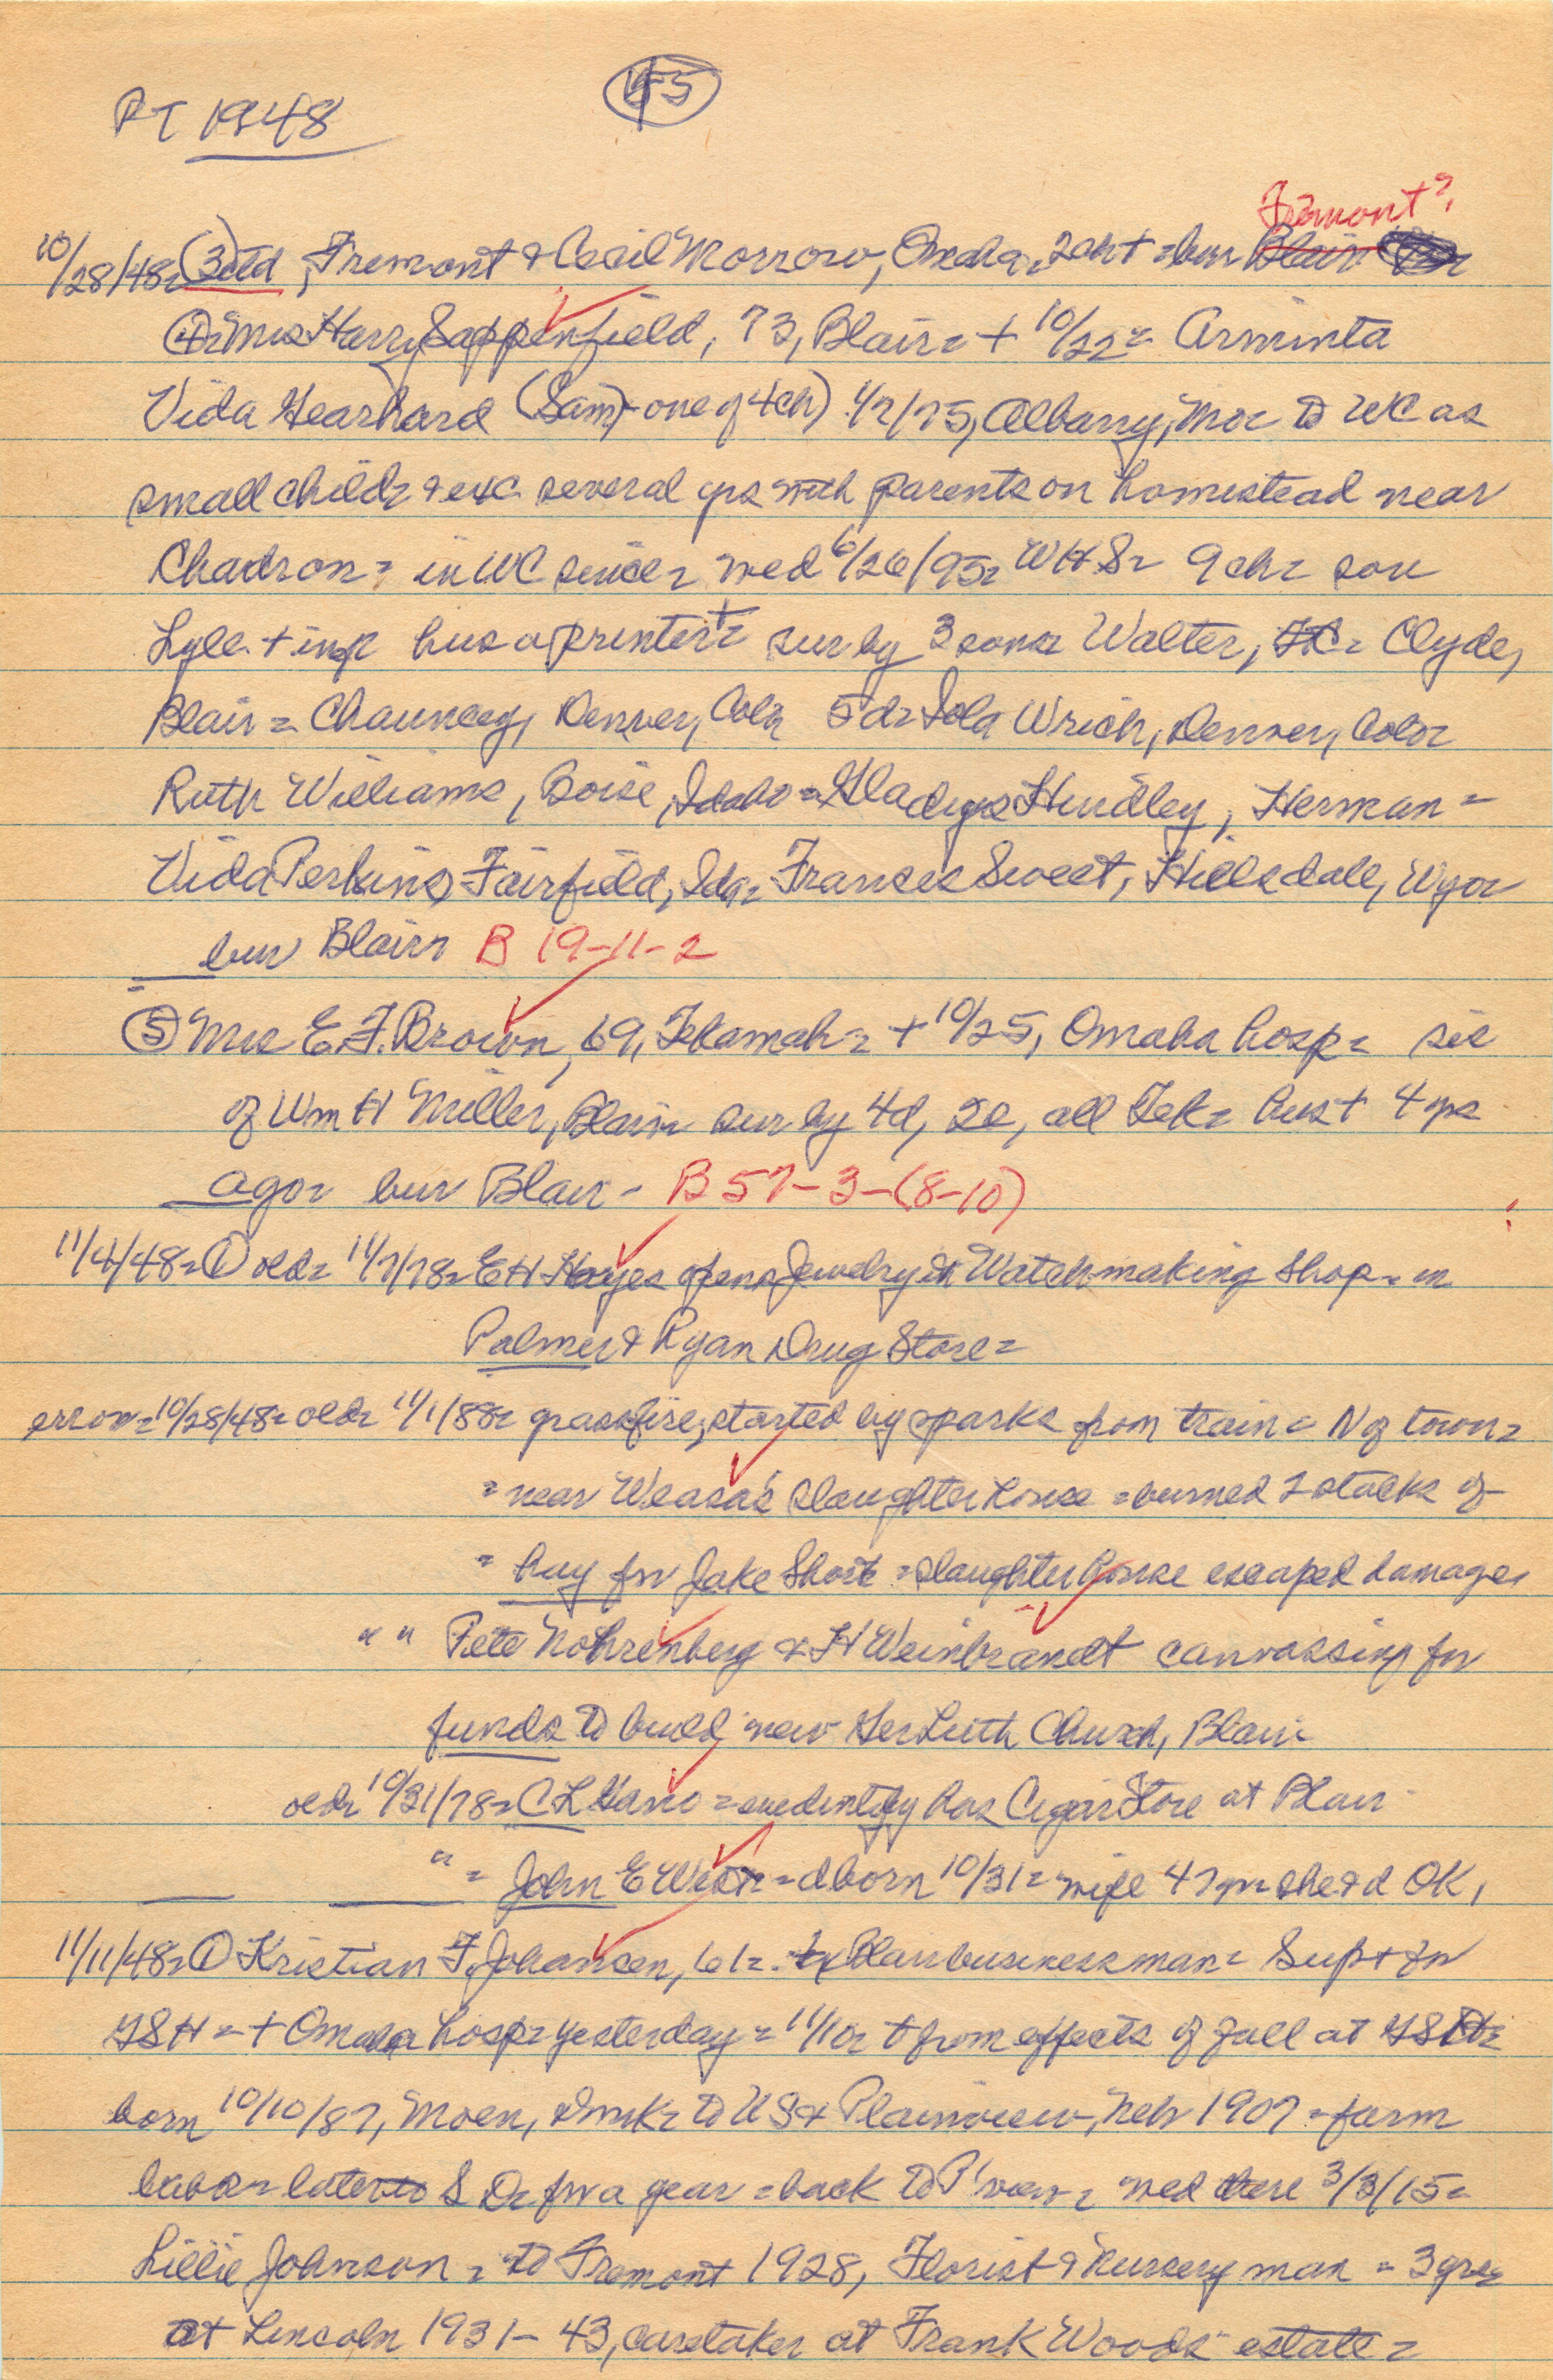 45
PT 1948
Fremont?
10/28/48= (3) ctd, Fremont & Cecil Morrow, Omaha= 2ch+ = bur Blair
(4)= Mrs Harry Sappenfield, 73, Blair= + 10/22= Arminta
Vida Gearhard (Sam)- one of 4ch) 1/2/75, Albany, Mo= to WC as
small child= & exc several yrs with parents on homestead near
Chadron= in WC since= med 6/26/95= WHS= 9ch= son
Lyle + inf hus a printer+= sur by 3 sons= Walter, = Clyde,
Blair= Chauncey, Denver, Col= 5d= Iola Wrich, Denver, Colo=
Ruth Williams, Boise, Idaho= Gladys Hindley, Herman=
Vida Perkins, Fairfield, Ida= Franses Sweet, Hillsdale, Wyo=
bur Blair= B 19-11-2
(5) Mrs E.F. Brown, 69, Tekamah= + 10/25, Omaha hosp= sis
of Wm H Miller, Blair= sur by 4d, 2s, all Tek= hus+ 4 yrs
ago= bur Blair- B 57-3-(8-10)
11/4/48= (1) old= 11/7/78= E H Hayes opens Jewelry & Watchmaking shop= in
Palmer & Ryan Drug Store=
error= 10/28/48= old= 11/1/88= grassfire, started by sparks from train= N of town=
= near Weasa's slaughter house = burned 2 stacks of
= hay for Jake Short = slaughter house escaped damage=
" " Pete Nohrenberg & H Weinbrandt canvassing for
funds to build new Ger Luth Church, Blair
old= 10/31/78= C L = evidently has Cigar Store at Blair
" = John E West= = d born 10/31= wife 47 yr= she & d OK,
11/11/48= (1) Kristian F. Johansen, 61= Blair businessman= Supt for
GSH= + Omaha hosp= yesterday= 11/10= + from effects of fall at GSH=
born 10/10/87, Moen, Dmk= to US & Plainview, Neb 1907= farm
labor= later to S D= for a year= back to P'view= med there 3/3/15=
Lillie Johnson= to Fremont 1928, Florist & Nursery man = 3 yrs=
at Lincoln 1931-43, caretaker at Frank Woods estate=